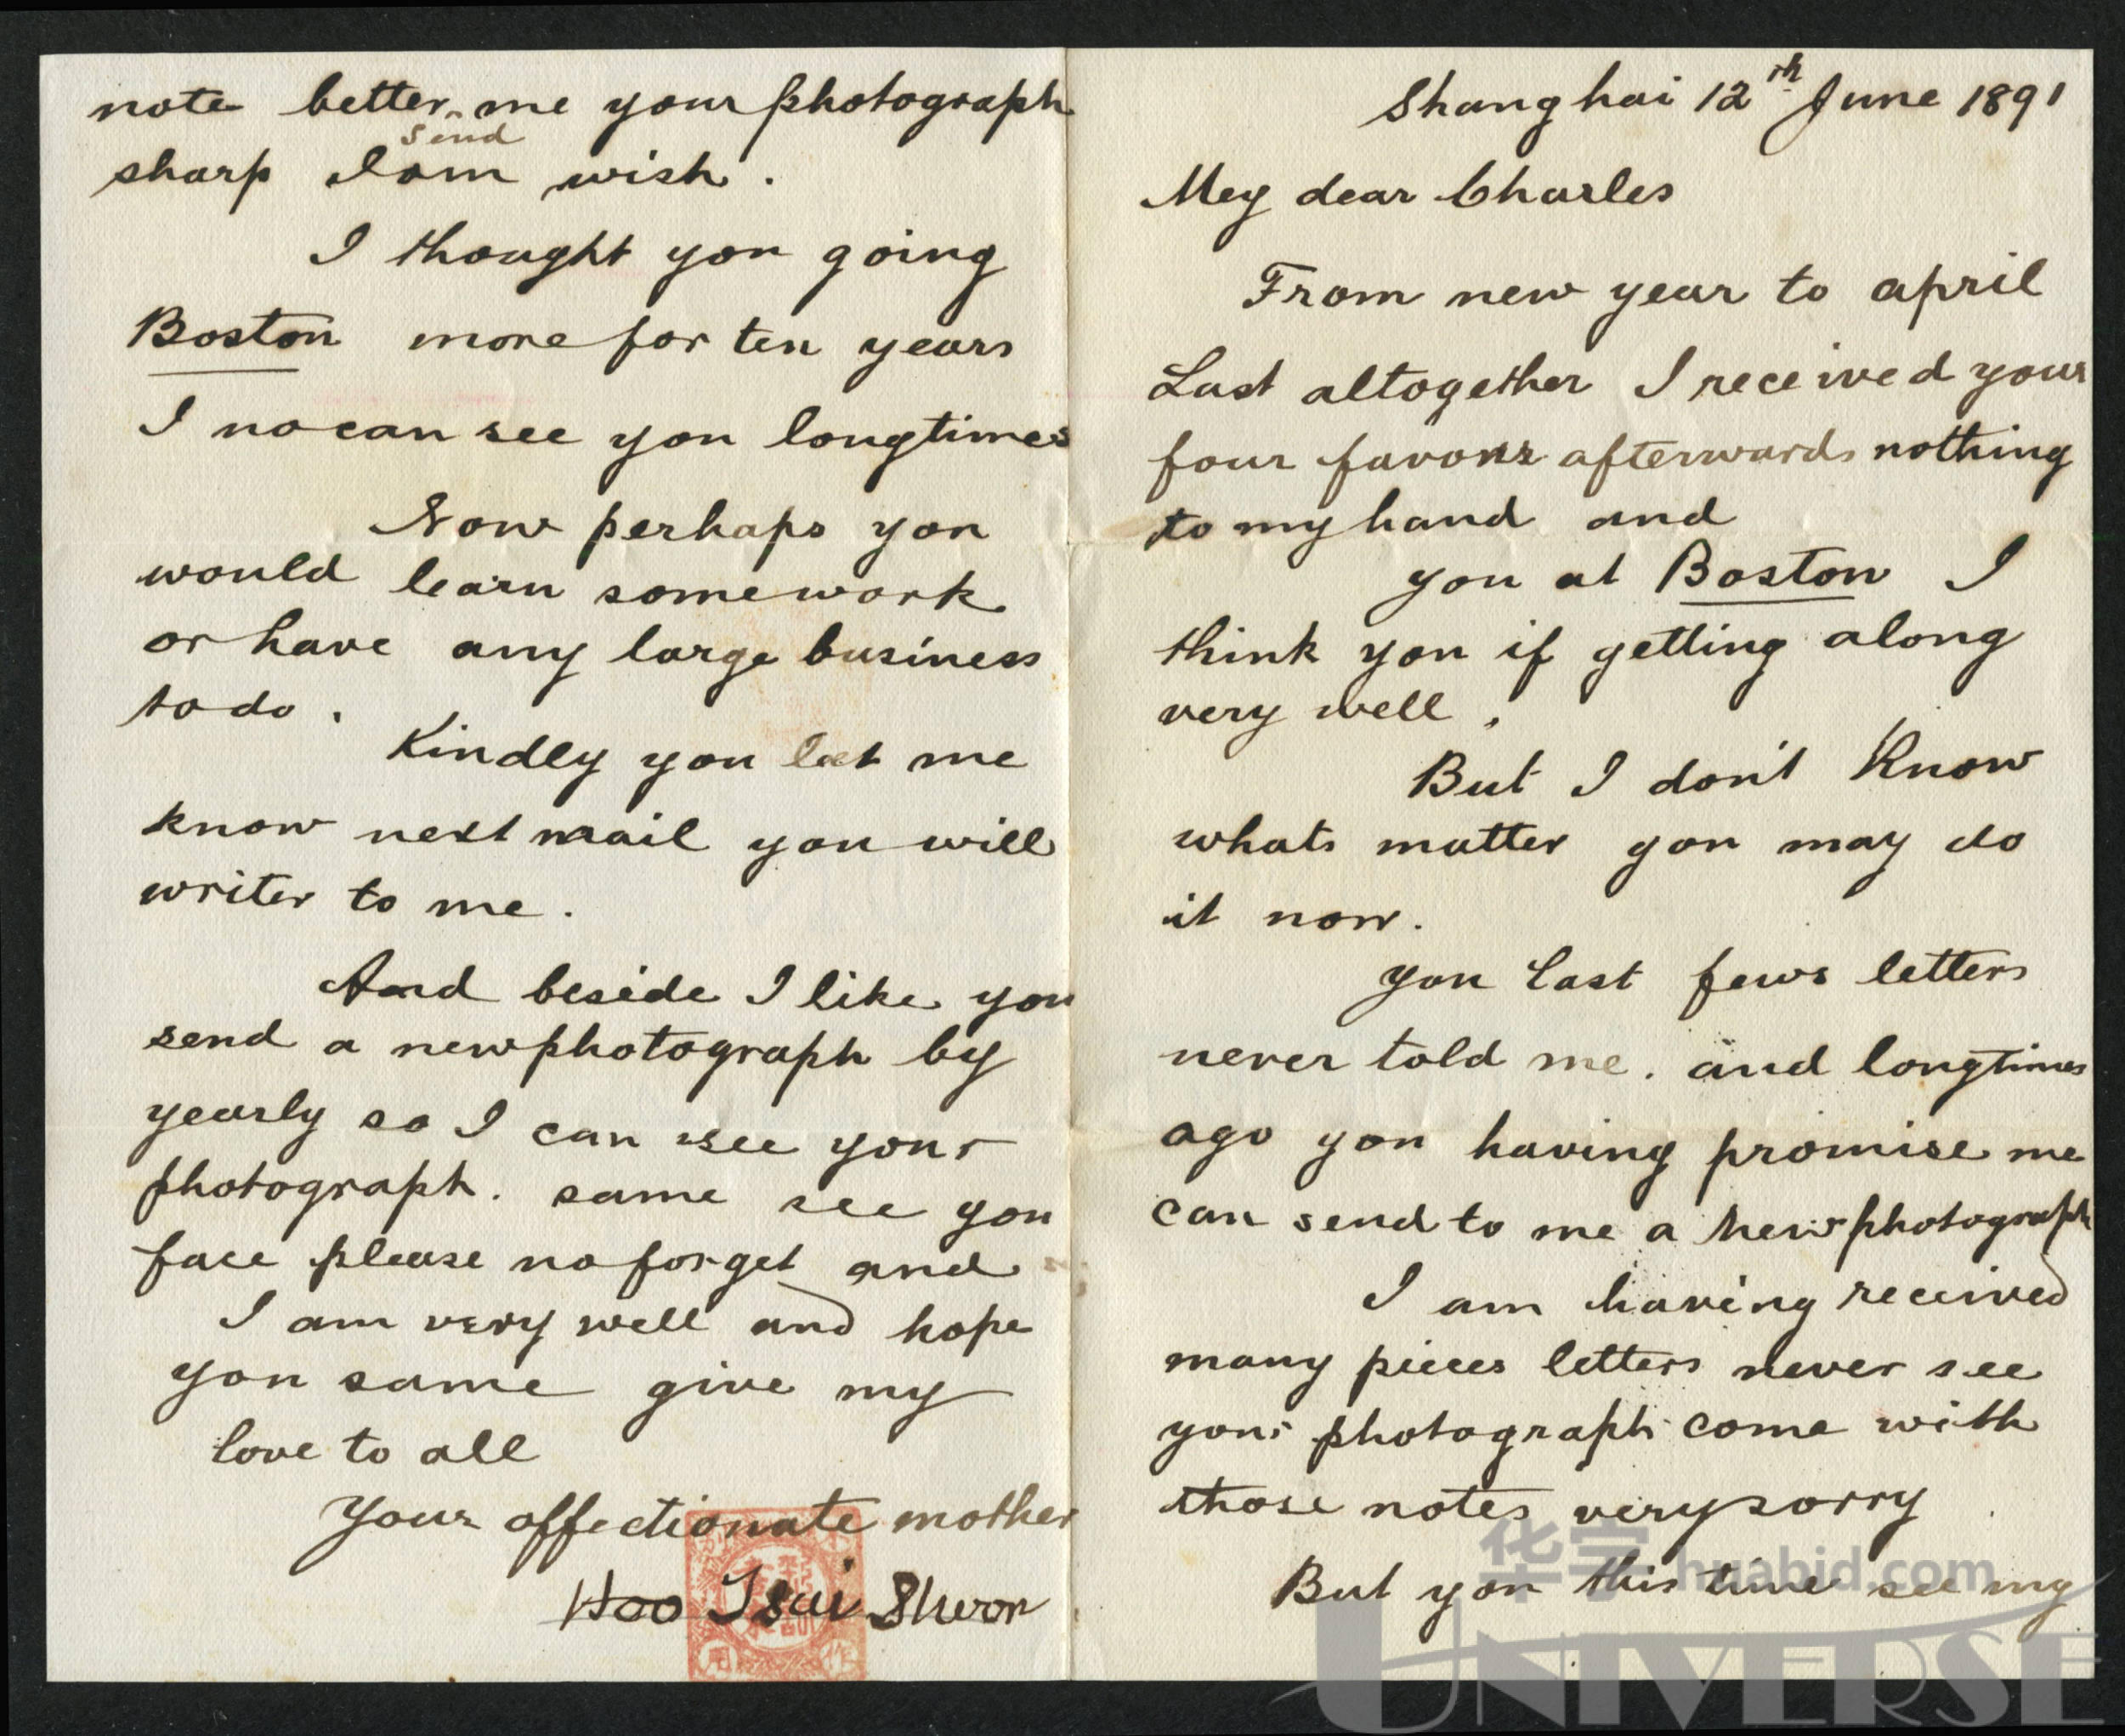 Shanghai 12th June 1891
Mey dear Charles
From new year to april
Last altogether I received your
four favors afterwards nothing
to my hand and
you at Boston I
think you if getting along
very well.
But I don't Know
whats matter you may do
it now.
you last fews letters
never told me. and longtimes
ago you having promise me
can send to me a new photograph
I am having received
many pieces letters never see
your photograph come with
those notes very sorry
But you this time see my
note better send me your photograph
sharp I am wish.
I thought you going
Boston more for ten years
I no can see you longtimes
Now perhaps you
would learn some work
or have any large business
to do.
Kindly you let me
know next mail you will
writer to me.
And beside I like you
send a new photograph by
yearly so I can see your
photograph. same see you
face please no forget and
I am very well and hope
you same give my
love to all
Your affectionate mother
Hoo Tsai Shuon
华宇 huabid.com
UNIVERSE